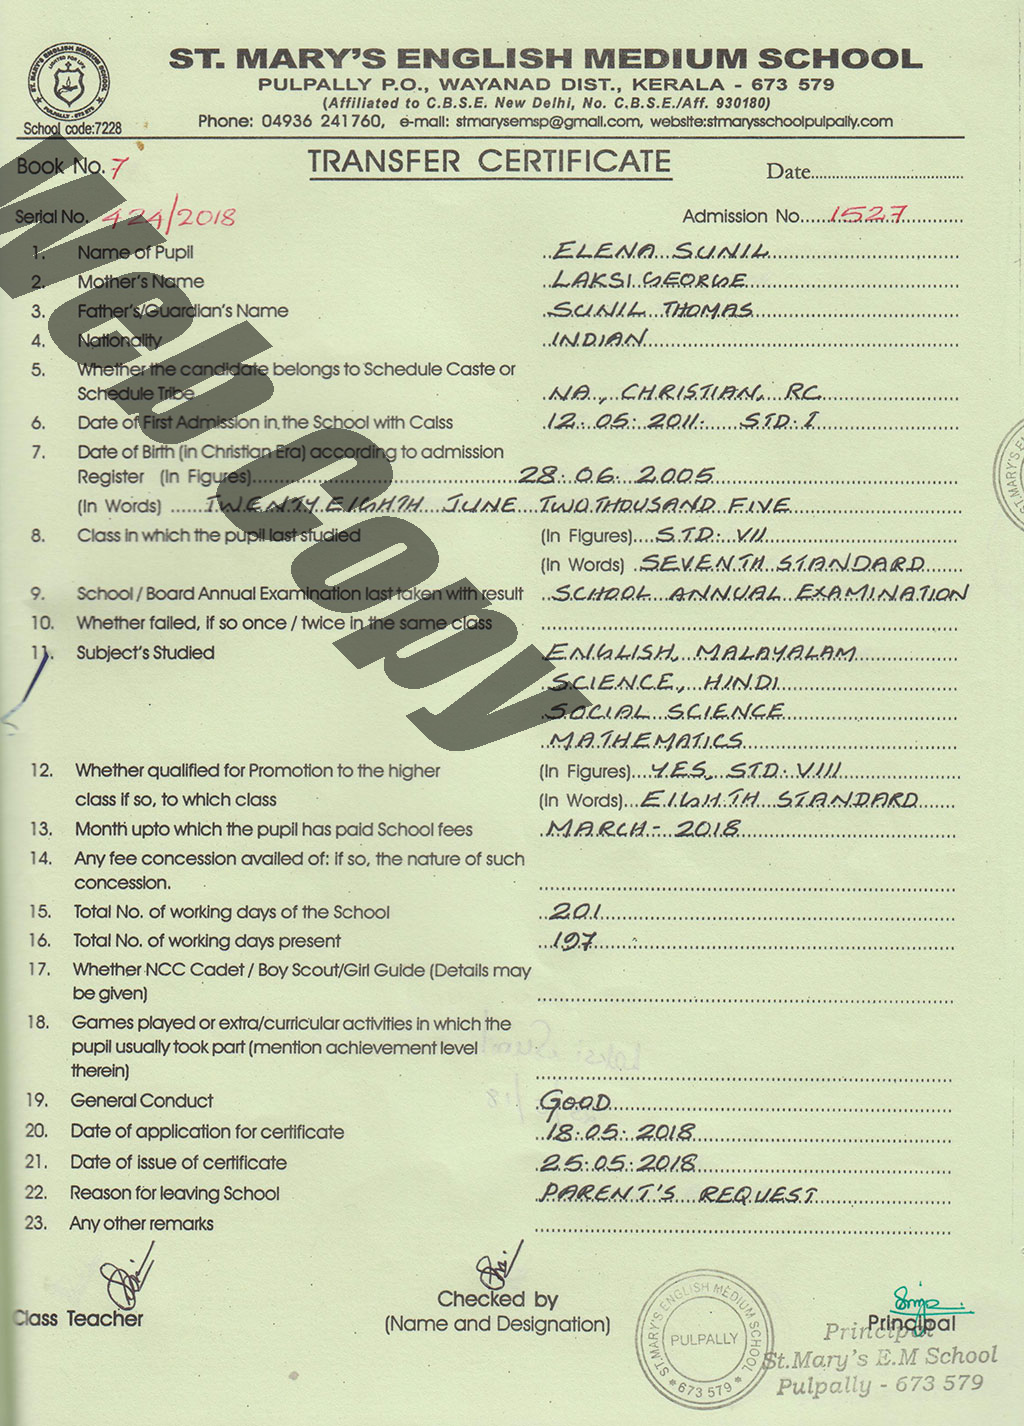 ST. MARY'S ENGLISH MEDIUM SCHOOL
PULPALLY P.O., WAYANAD DIST., KERALA - 673 579
(Affiliated to C.B.S.E. New Delhi, No. C.B.S.E./Aff. 930180)
School code:7228
Phone: 04936 241760, e-mail: stmarysemsp@gmail.com, website:stmarysschoolpulpally.com
Book No. 7
TRANSFER CERTIFICATE
Date
Serial No. 424/2018
Admission No. 1527
1. Name of Pupil ELENA SUNIL
2. Mother's Name LAKSI GEORGE
3. Father's/Guardian's Name SUNIL THOMAS
4. Nationality INDIAN
5. Whether the candidate belongs to Schedule Caste or
Schedule Tribe NA, CHRISTIAN, RC
6. Date of First Admission in the School with Calss 12.05.2011. STD. I
7. Date of Birth (in Christian Era) according to admission
Register (In Figures) 28.06.2005
(In Words) TWENTY EIGHTH JUNE TWO THOUSAND FIVE
8. Class in which the pupil last studied (In Figures) STD. VII
(In Words) SEVENTH STANDARD
9. School / Board Annual Examination last taken with result SCHOOL ANNUAL EXAMINATION
10. Whether failed, if so once / twice in the same class
11. Subject's Studied ENGLISH, MALAYALAM
SCIENCE, HINDI
SOCIAL SCIENCE
MATHEMATICS
12. Whether qualified for Promotion to the higher (In Figures) YES, STD. VIII
class if so, to which class (In Words) EIGHTH STANDARD
13. Month upto which the pupil has paid School fees MARCH - 2018
14. Any fee concession availed of: if so, the nature of such
concession.
15. Total No. of working days of the School 201
16. Total No. of working days present 197
17. Whether NCC Cadet / Boy Scout/Girl Guide (Details may
be given)
18. Games played or extra/curricular activities in which the
pupil usually took part (mention achievement level
therein)
19. General Conduct GOOD
20. Date of application for certificate 18.05.2018
21. Date of issue of certificate 25.05.2018
22. Reason for leaving School PARENT'S REQUEST
23. Any other remarks
Class Teacher
Checked by
(Name and Designation)
Principal
ST.MARY'S ENGLISH MEDIUM SCHOOL
PULPALLY
* 673 579 *
Principal
St.Mary's E.M School
Pulpally - 673 579
Web Copy